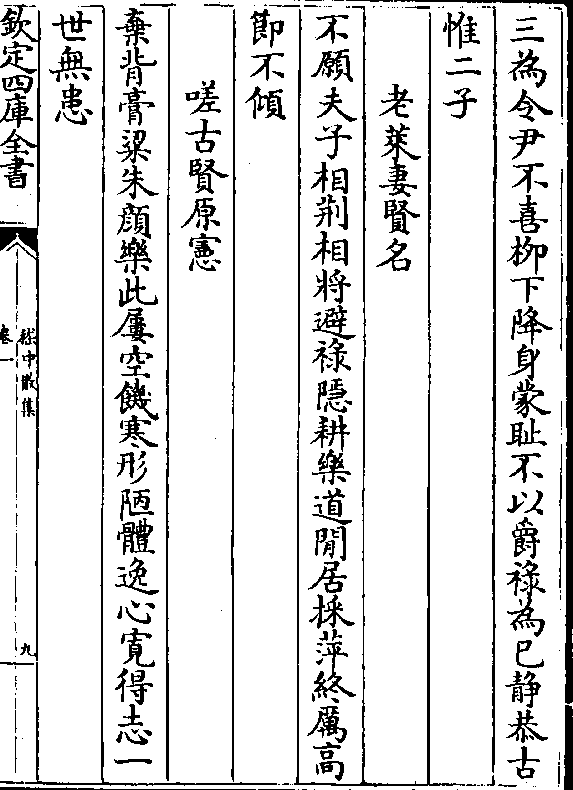 三為令尹不喜柳下降身蒙耻不以爵祿為已靜恭古
惟二子
老萊妻賢名
不願夫子相荆相將避祿隱耕樂道閒居採萍終厲高
節不傾
嗟古賢原憲
棄背膏粱朱顔樂此屢空饑寒形陋體逸心寛得志一
世無患
欽定四庫全書
嵇中散集
卷一
九